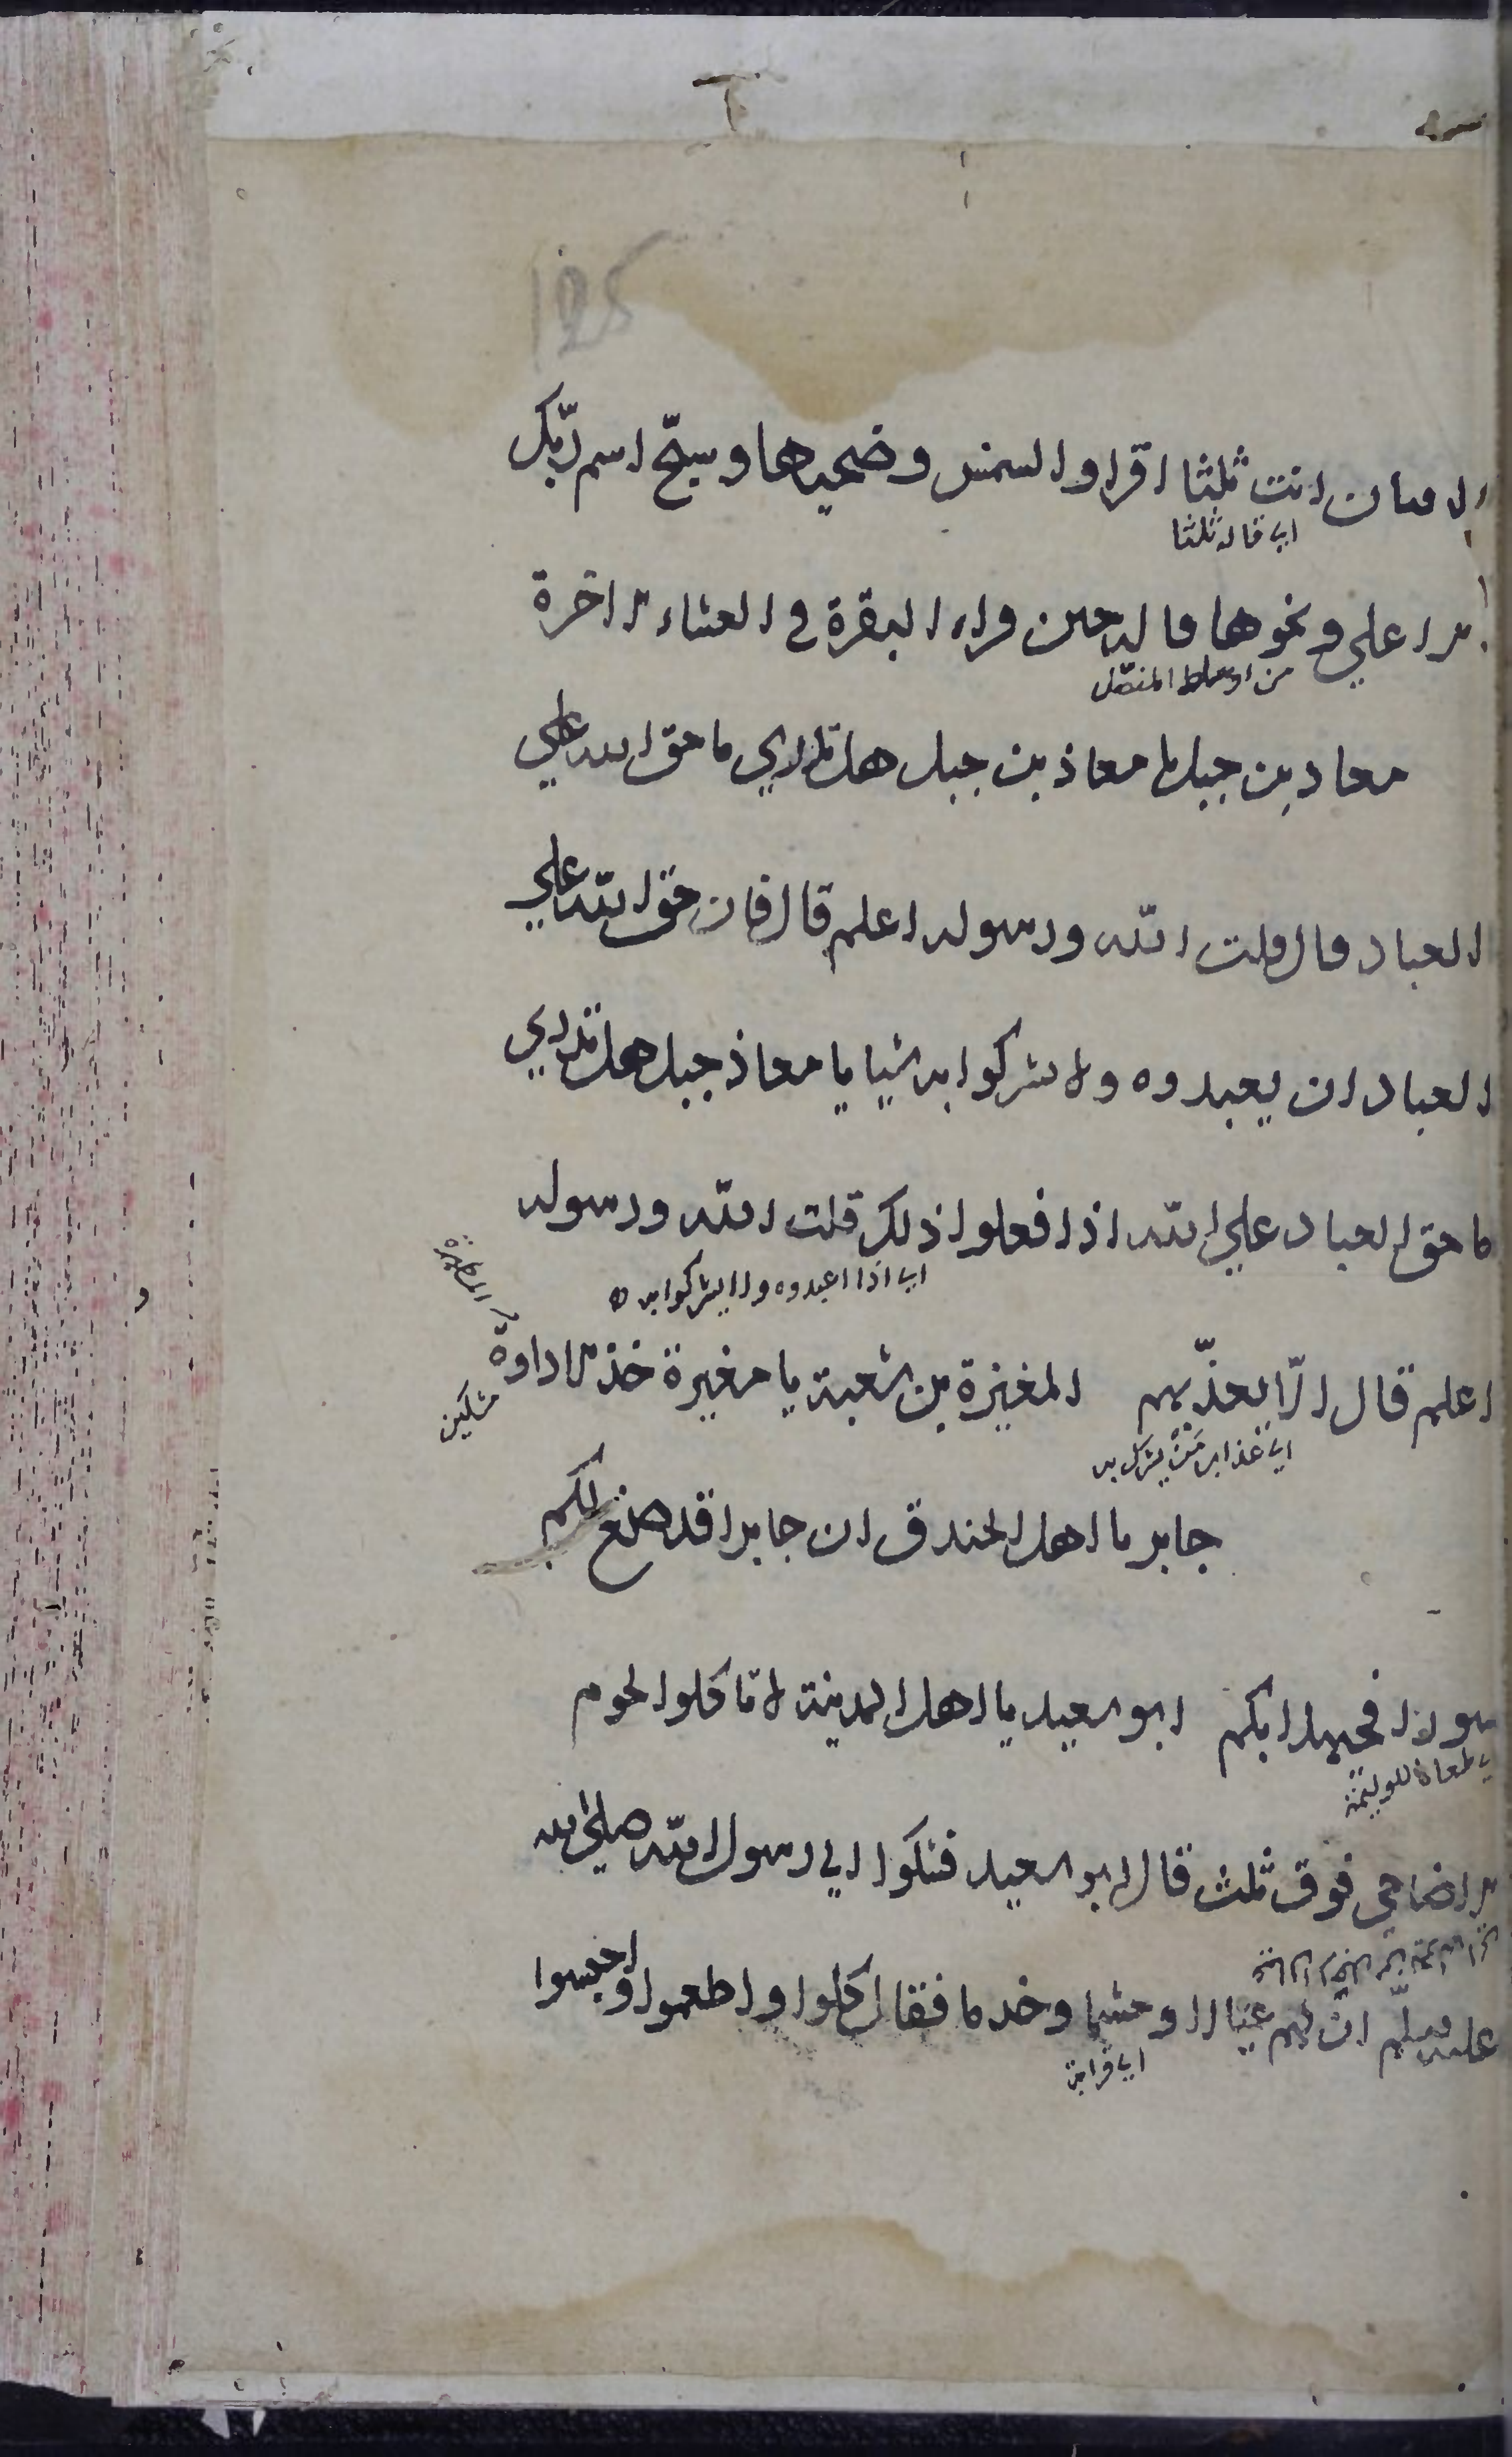 125
افتان انت ثلثا اقرا والشمس وضحيها وسبح اسم ربك
اي قاله ثلثا
الاعلي ونحوها قاله حين قراء البقرة في العشاء الاخرة
من اوساط المفصل
معاد بن جبل يا معاذ بن جبل هل تدري ما حق الله علي
العباد قال قلت الله ورسوله اعلم قال فان حق الله علي
العباد ان يعبدوه ولا يشركوا به شيا يا معاذ جبل هل تدري
ما حق العباد علي الله اذا فعلوا ذلك قلت الله ورسوله
اي اذا اعبدوه ولا يشركوا به
اعلم قال الا يعذبهم المغيرة بن شعبة يا مغيرة خذ الاداوة
المطهرة
اي عذابه من يشرك به
جابر يا اهل الخندق ان جابرا قد صنع لكم
سورا فحيهلا بكم ابو سعيد يا اهل المدينة لا تاكلوا لحوم
اي طعاما للوليمة
الاضاحي فوق ثلث قال ابو سعيد فشكوا الي رسول الله صلي الله
عليه وسلم ان لهم عيالا وحشما وخدما فقال كلوا واطعموا واحبسوا
اي قرابة